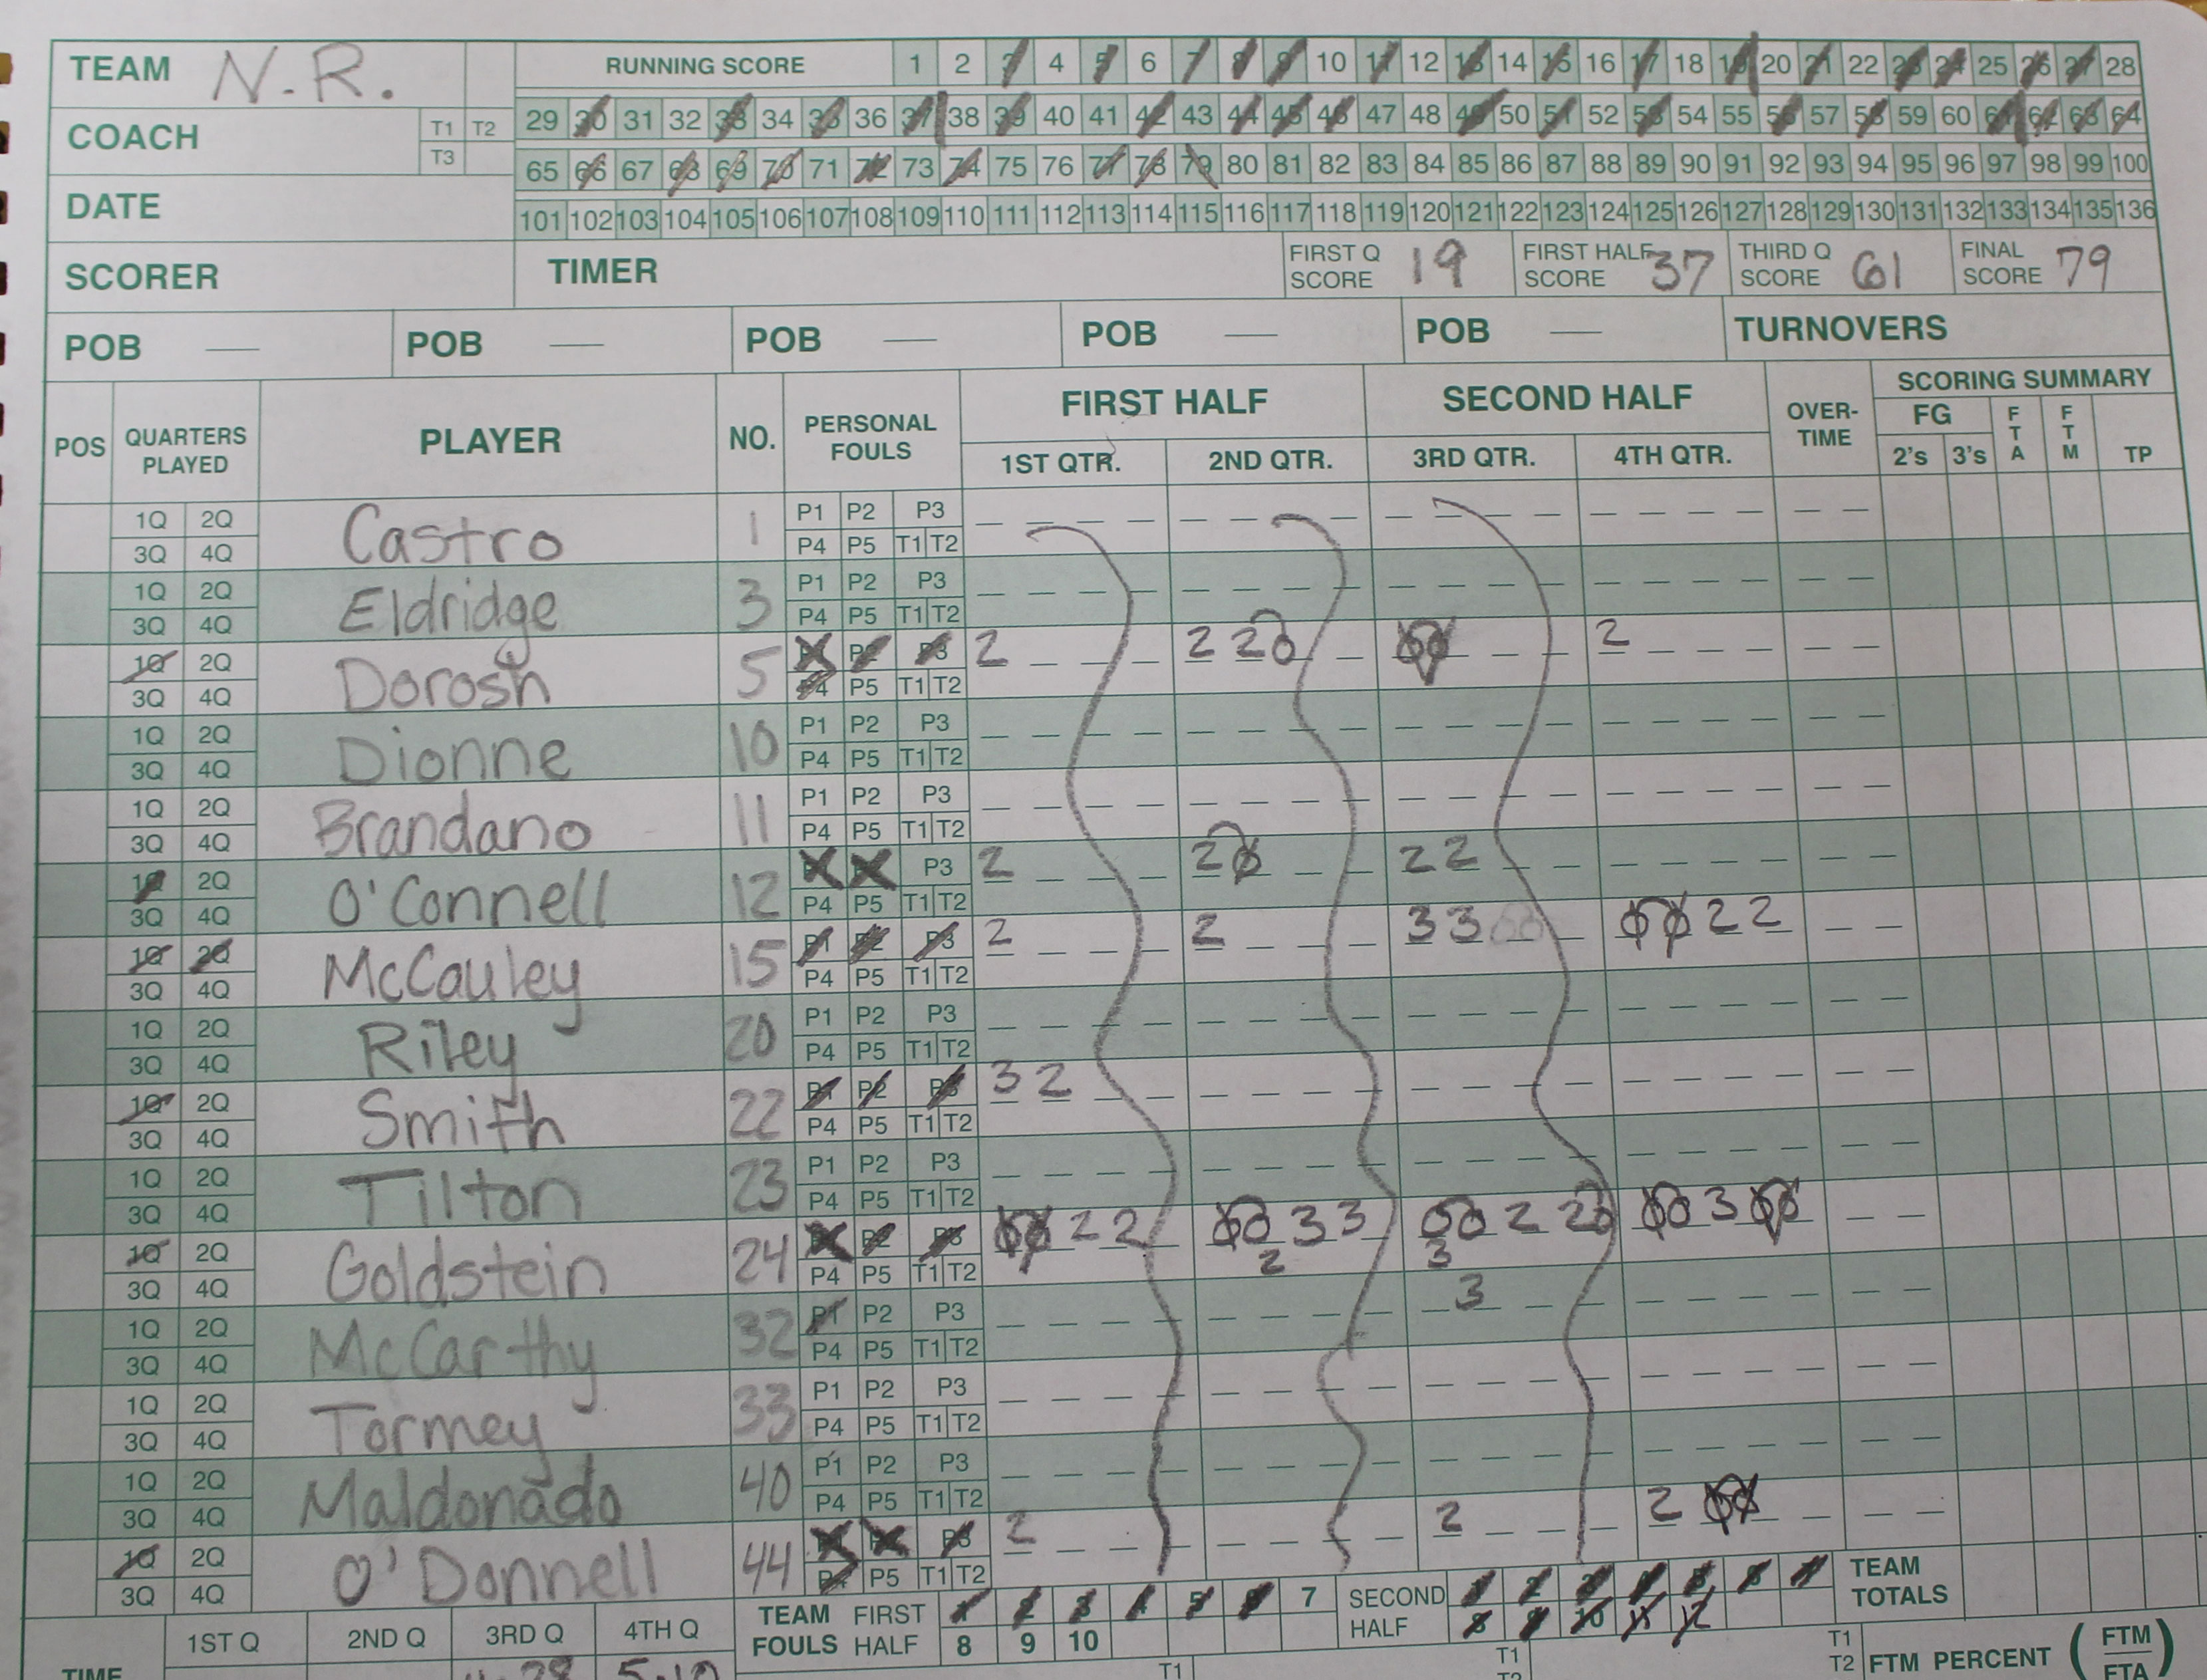 TEAM N.R. RUNNING SCORE 1 2 3 4 5 6 7 8 9 10 11 12 13 14 15 16 17 18 19 20 21 22 23 24 25 26 27 28
COACH T1 T2 29 30 31 32 33 34 35 36 37 38 39 40 41 42 43 44 45 46 47 48 49 50 51 52 53 54 55 56 57 58 59 60 61 62 63 64
T3 65 66 67 68 69 70 71 72 73 74 75 76 77 78 79 80 81 82 83 84 85 86 87 88 89 90 91 92 93 94 95 96 97 98 99 100
DATE 101 102 103 104 105 106 107 108 109 110 111 112 113 114 115 116 117 118 119 120 121 122 123 124 125 126 127 128 129 130 131 132 133 134 135 136
SCORER TIMER FIRST Q SCORE 19 FIRST HALF SCORE 37 THIRD Q SCORE 61 FINAL SCORE 79
POB — POB — POB — POB — POB — TURNOVERS
POS QUARTERS PLAYED PLAYER NO. PERSONAL FOULS FIRST HALF SECOND HALF OVER-TIME SCORING SUMMARY
1ST QTR. 2ND QTR. 3RD QTR. 4TH QTR. FG 2's 3's FTA FTM TP
1Q 2Q Castro 1 P1 P2 P3
3Q 4Q P4 P5 T1 T2
1Q 2Q Eldridge 3 P1 P2 P3
3Q 4Q P4 P5 T1 T2
1Q 2Q Dorosh 5 P1 P2 P3 2 2 2 0 0 0 2
3Q 4Q P4 P5 T1 T2
1Q 2Q Dionne 10 P1 P2 P3
3Q 4Q P4 P5 T1 T2
1Q 2Q Brandano 11 P1 P2 P3
3Q 4Q P4 P5 T1 T2
1Q 2Q O'Connell 12 P1 P2 P3 2 2 0 2 2
3Q 4Q P4 P5 T1 T2
1Q 2Q McCauley 15 P1 P2 P3 2 2 3 3 0 0 2 2
3Q 4Q P4 P5 T1 T2
1Q 2Q Riley 20 P1 P2 P3
3Q 4Q P4 P5 T1 T2
1Q 2Q Smith 22 P1 P2 P3 3 2
3Q 4Q P4 P5 T1 T2
1Q 2Q Tilton 23 P1 P2 P3
3Q 4Q P4 P5 T1 T2
1Q 2Q Goldstein 24 P1 P2 P3 0 0 2 2 0 0 3 3 0 0 2 2 0 0 0 3 0 0
3Q 4Q P4 P5 T1 T2 2 3
1Q 2Q McCarthy 32 P1 P2 P3 3
3Q 4Q P4 P5 T1 T2
1Q 2Q Tormey 33 P1 P2 P3
3Q 4Q P4 P5 T1 T2
1Q 2Q Maldonado 40 P1 P2 P3
3Q 4Q P4 P5 T1 T2
1Q 2Q O'Donnell 44 P1 P2 P3 2 2 2 0 0
3Q 4Q P4 P5 T1 T2
TEAM FOULS FIRST HALF 1 2 3 4 5 6 7 SECOND HALF 1 2 3 4 5 6 7 TEAM TOTALS
8 9 10 8 9 10 11 12
1ST Q 2ND Q 3RD Q 4TH Q
TIME T1 T1 T1 T2 FTM PERCENT (FTM FTA)